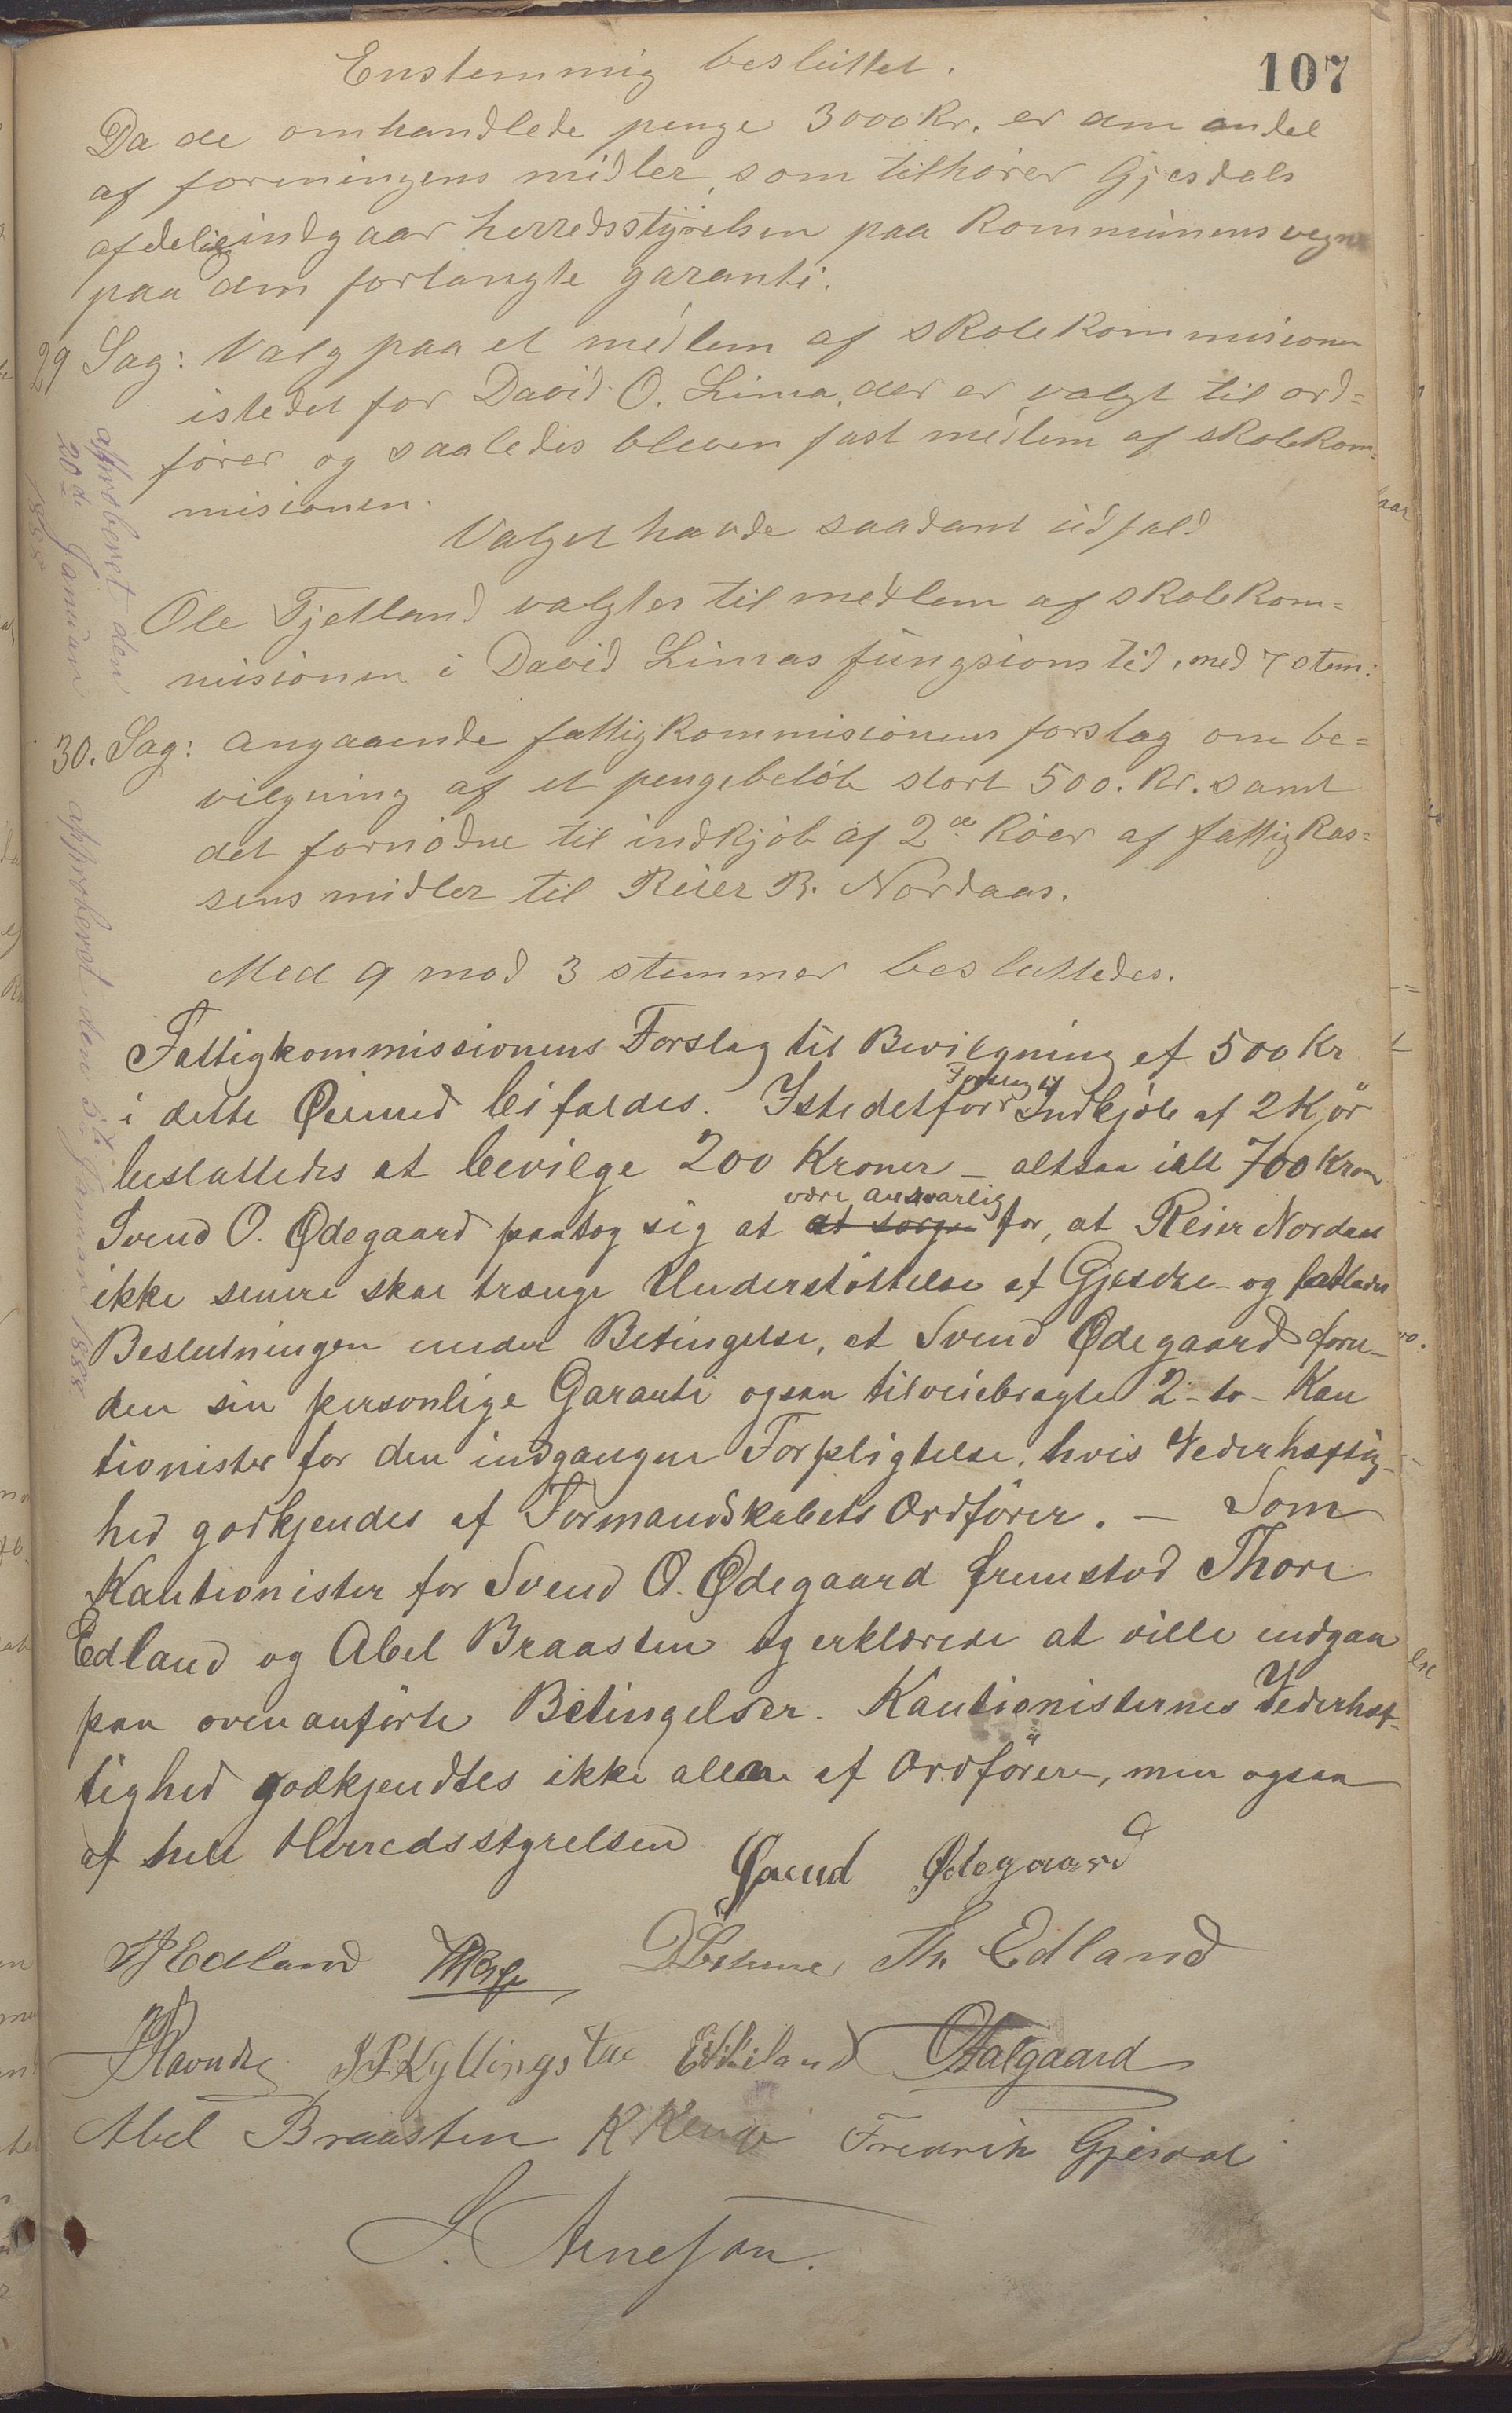 107
Enstemmig besluttet.
Da de omhandlede penge 3000 Kr. er den andel
af foreningens midler, som tilhører Gjesdals
afdeling indgaar herredsstyrelsen paa Kommunens vegne
paa den forlangte garanti.
29 Sag: Valg paa et medlem af skolekommisionen
istedet for David O. Lima, der er valgt til ord=
fører og saaledes bleven fast medlem af skolekom=
misionen.
Valget havde saadant udfald
Ole Tjetland valgtes til medlem af skolekom=
misionen i David Limas fungsionstid, med 7 stem:
approberet den
20de Januar
1888
30. Sag: angaaende fattigkommisionens forslag om be=
vilgning af et pengebeløb stort 500. Kr. samt
det fornødne til indkjøb af 2de Køer af fattigkas=
sens midler til Reier R. Nordaas.
Med 9 mod 3 stemmer besluttedes.
Fattigkommissionens Forslag til Bevilgning af 500 Kr
i dette Øiemed bifaldes. Istedetfor Forslag til Indkjøb af 2 Kjør
besluttedes at bevilge 200 Kroner – altsaa ialt 700 Kroner
Svend O. Ødegaard paatog sig at være ansvarlig for, at Reier Nordaas
ikke senere skal trænge Understøttelse af Gjesdal – og fattedes
Beslutningen under Betingelse, at Svend Ødegaard foru–
den sin personlige Garanti ogsaa tilveiebragte 2 – to – Kau
tionister for den indgangne Forpligtelse, hvis Vederhæftig–
hed godkjendes af Formandskabets Ordfører. – Som
Kautionister for Svend O. Ødegaard fremstod Thore
Edland og Abel Braasten og erklærede at ville indgaa
paa ovenanførte Betingelser. Kautionisternes Vederhæf–
tighed godkjendtes ikke alene af Ordføreren, men ogsaa
af hele Herredsstyrelsen
approberet den 5te Januar 1888
Svend Ødegaard
Edland
Th. Edland
Ravndal
Kyllingstad
Aalgaard
Abel Braasten
Fredrik Gjesdal
S. Arneson.